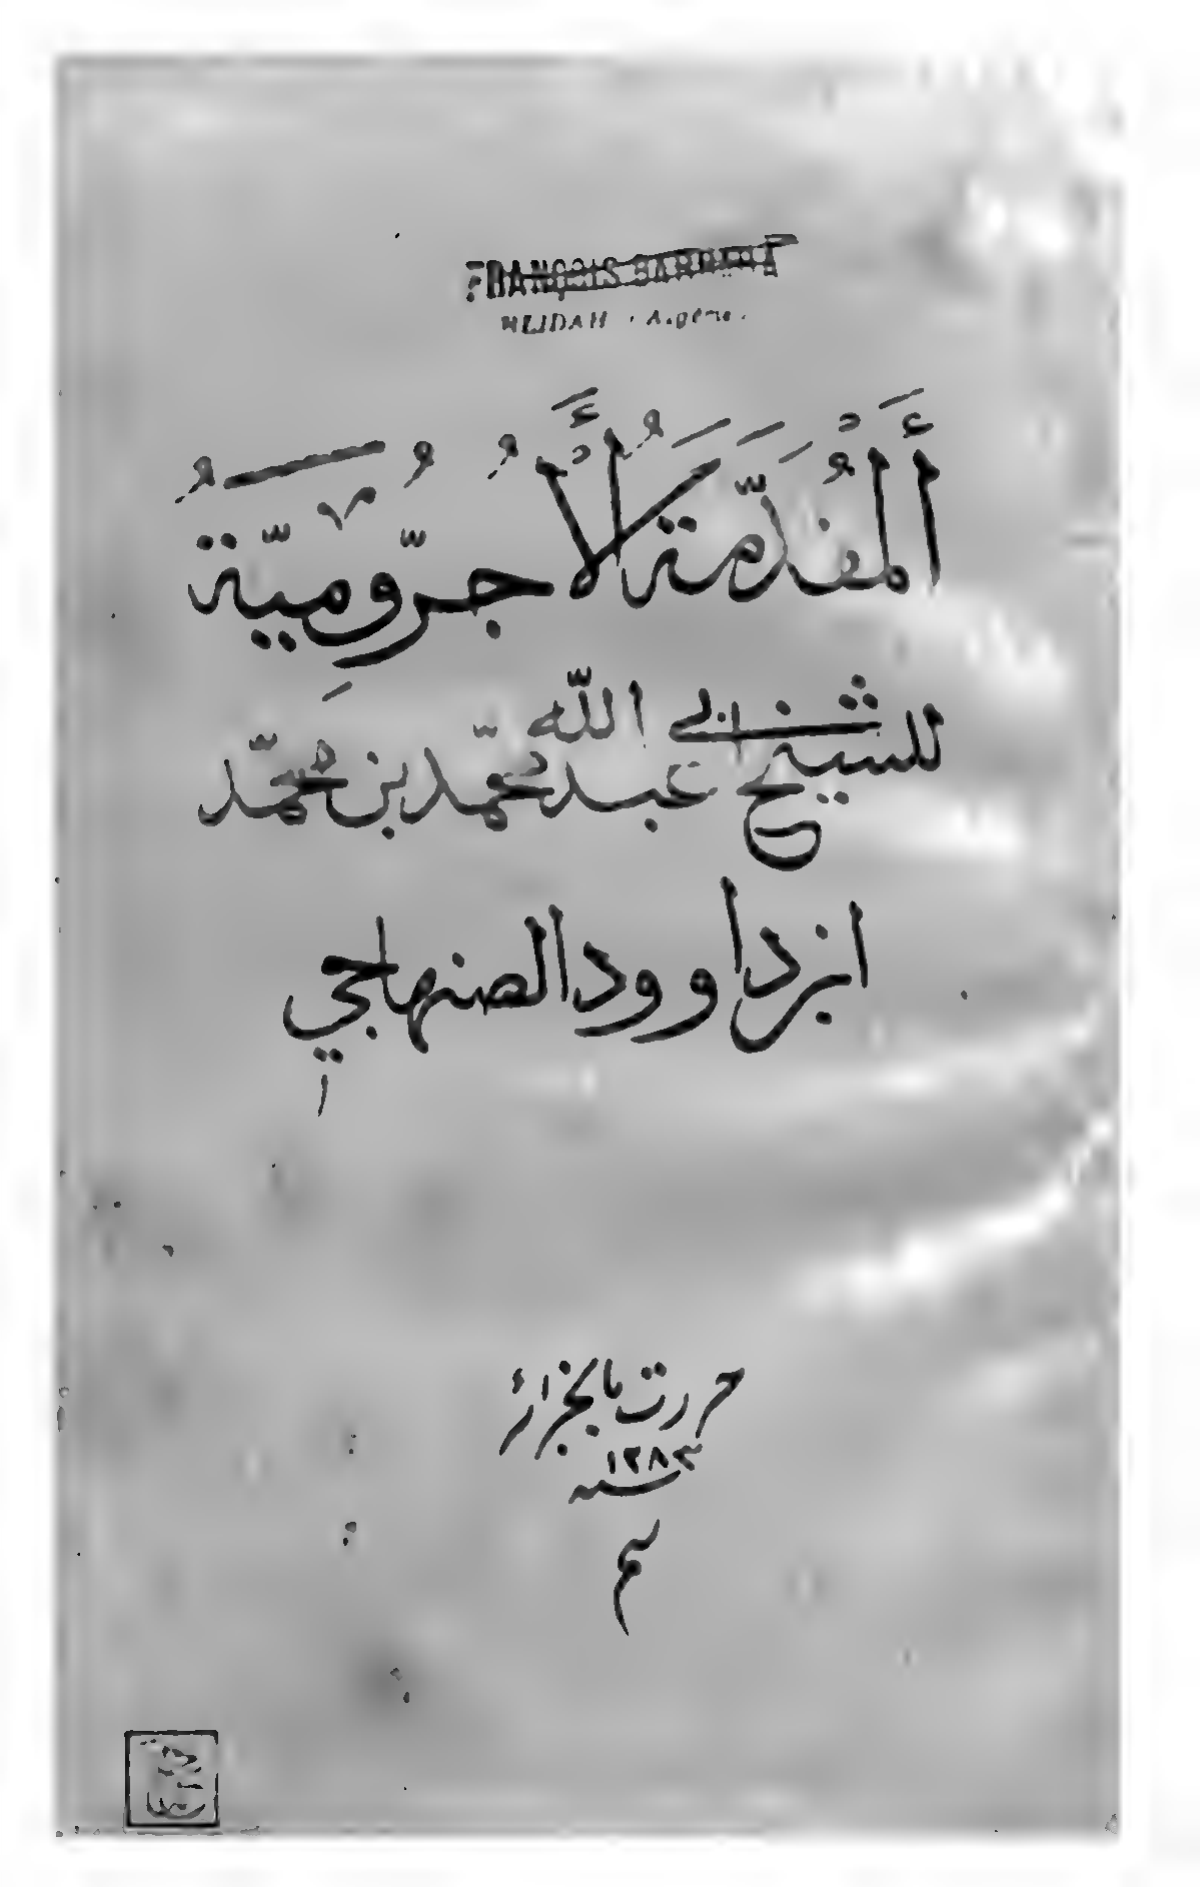 FRANÇOIS BARBARA
BLIDAH (Algérie)
أَلْمُقَدِّمَةُ اَلْأَجُرُّومِيَّةُ
للشيخ ابي عبد الله محمّد بن محمّد
ابن داوود الصنهاجي
حررت بالجزائر
سنه ١٢٨٣